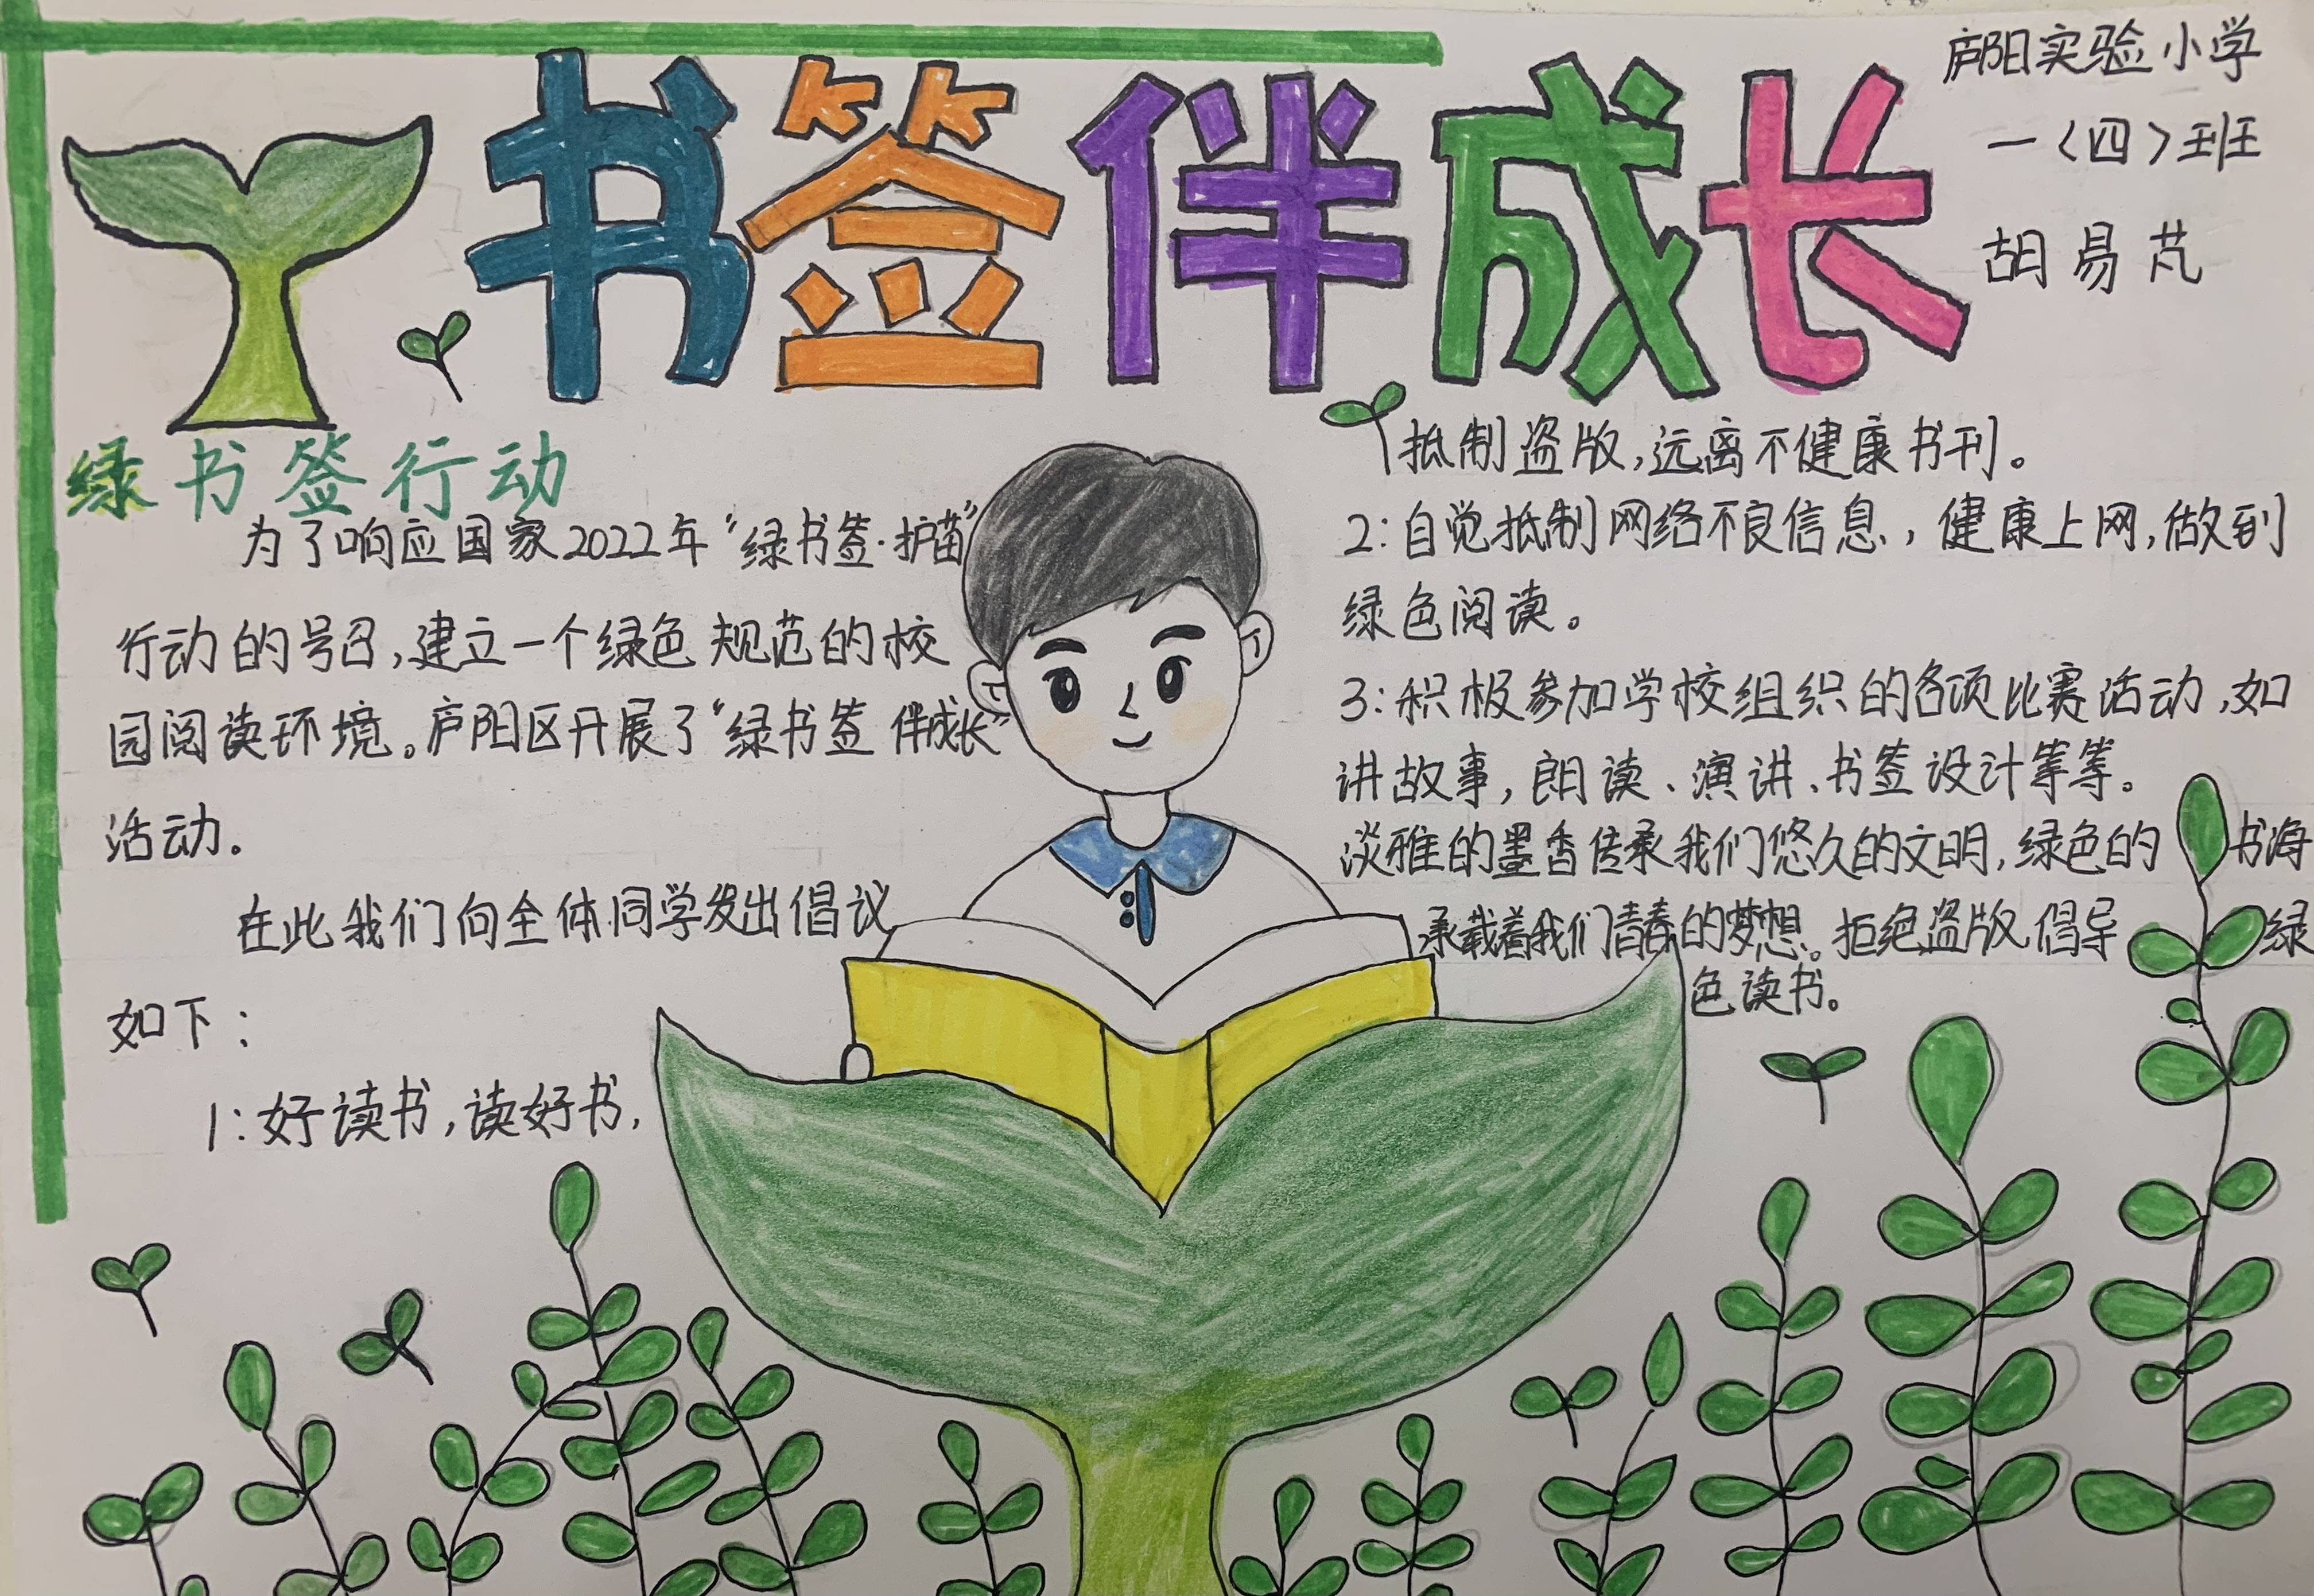 书签伴成长
庐阳实验小学
一〈四〉班
胡易芃
绿书签行动
为了响应国家2022年“绿书签·护苗”
行动的号召,建立一个绿色规范的校
园阅读环境。庐阳区开展了“绿书签 伴成长”
活动。
在此我们向全体同学发出倡议
如下：
1:好读书,读好书,
抵制盗版,远离不健康书刊。
2:自觉抵制网络不良信息,健康上网,做到
绿色阅读。
3:积极参加学校组织的各项比赛活动,如
讲故事,朗读、演讲、书签设计等等。
淡雅的墨香传承我们悠久的文明,绿色的书海
承载着我们青春的梦想。拒绝盗版倡导绿
色读书。